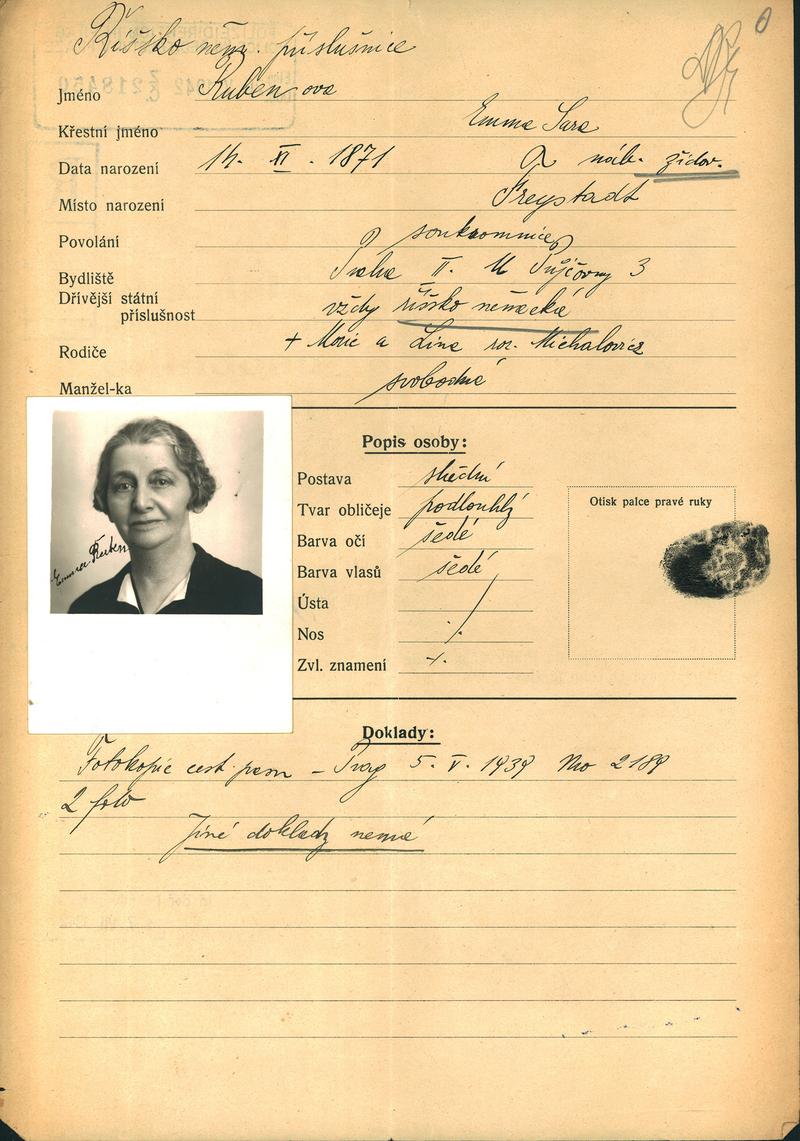 Říšsko něm. příslušnice
Jméno Rubenova
Křestní jméno Emma Sara
Data narození 14. XI. 1871 náb. židov.
Místo narození Freystadt
Povolání soukromnice
Bydliště Praha II. U Půjčovny 3
Dřívější státní
příslušnost vždy říšsko německá
Rodiče + Moric a Lina roz. Michalovicz
Manžel-ka svobodná
Popis osoby:
Postava střední
Tvar obličeje podlouhlý
Barva očí šedé
Barva vlasů šedé
Ústa
Nos
Zvl. znamení
Otisk palce pravé ruky
Emma Ruben
Doklady:
Fotokopie cest. pasu – Prag 5. V. 1939 No 2189
2 foto
Jiné doklady nemá